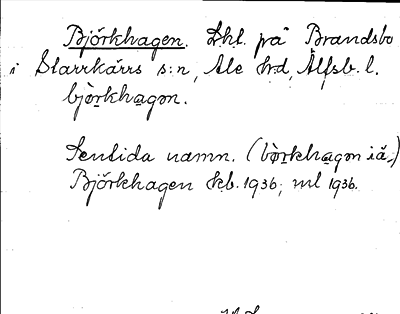 Björkhagen. Lhl. på Brandsbo
i Starrkärrs s:n, Ale hrd, Älfsb. l.
bjö̀rkhagən.
Sentida namn. (bö̀rkhagən iä,)
Björkhagen kb. 1936; ml 1936.